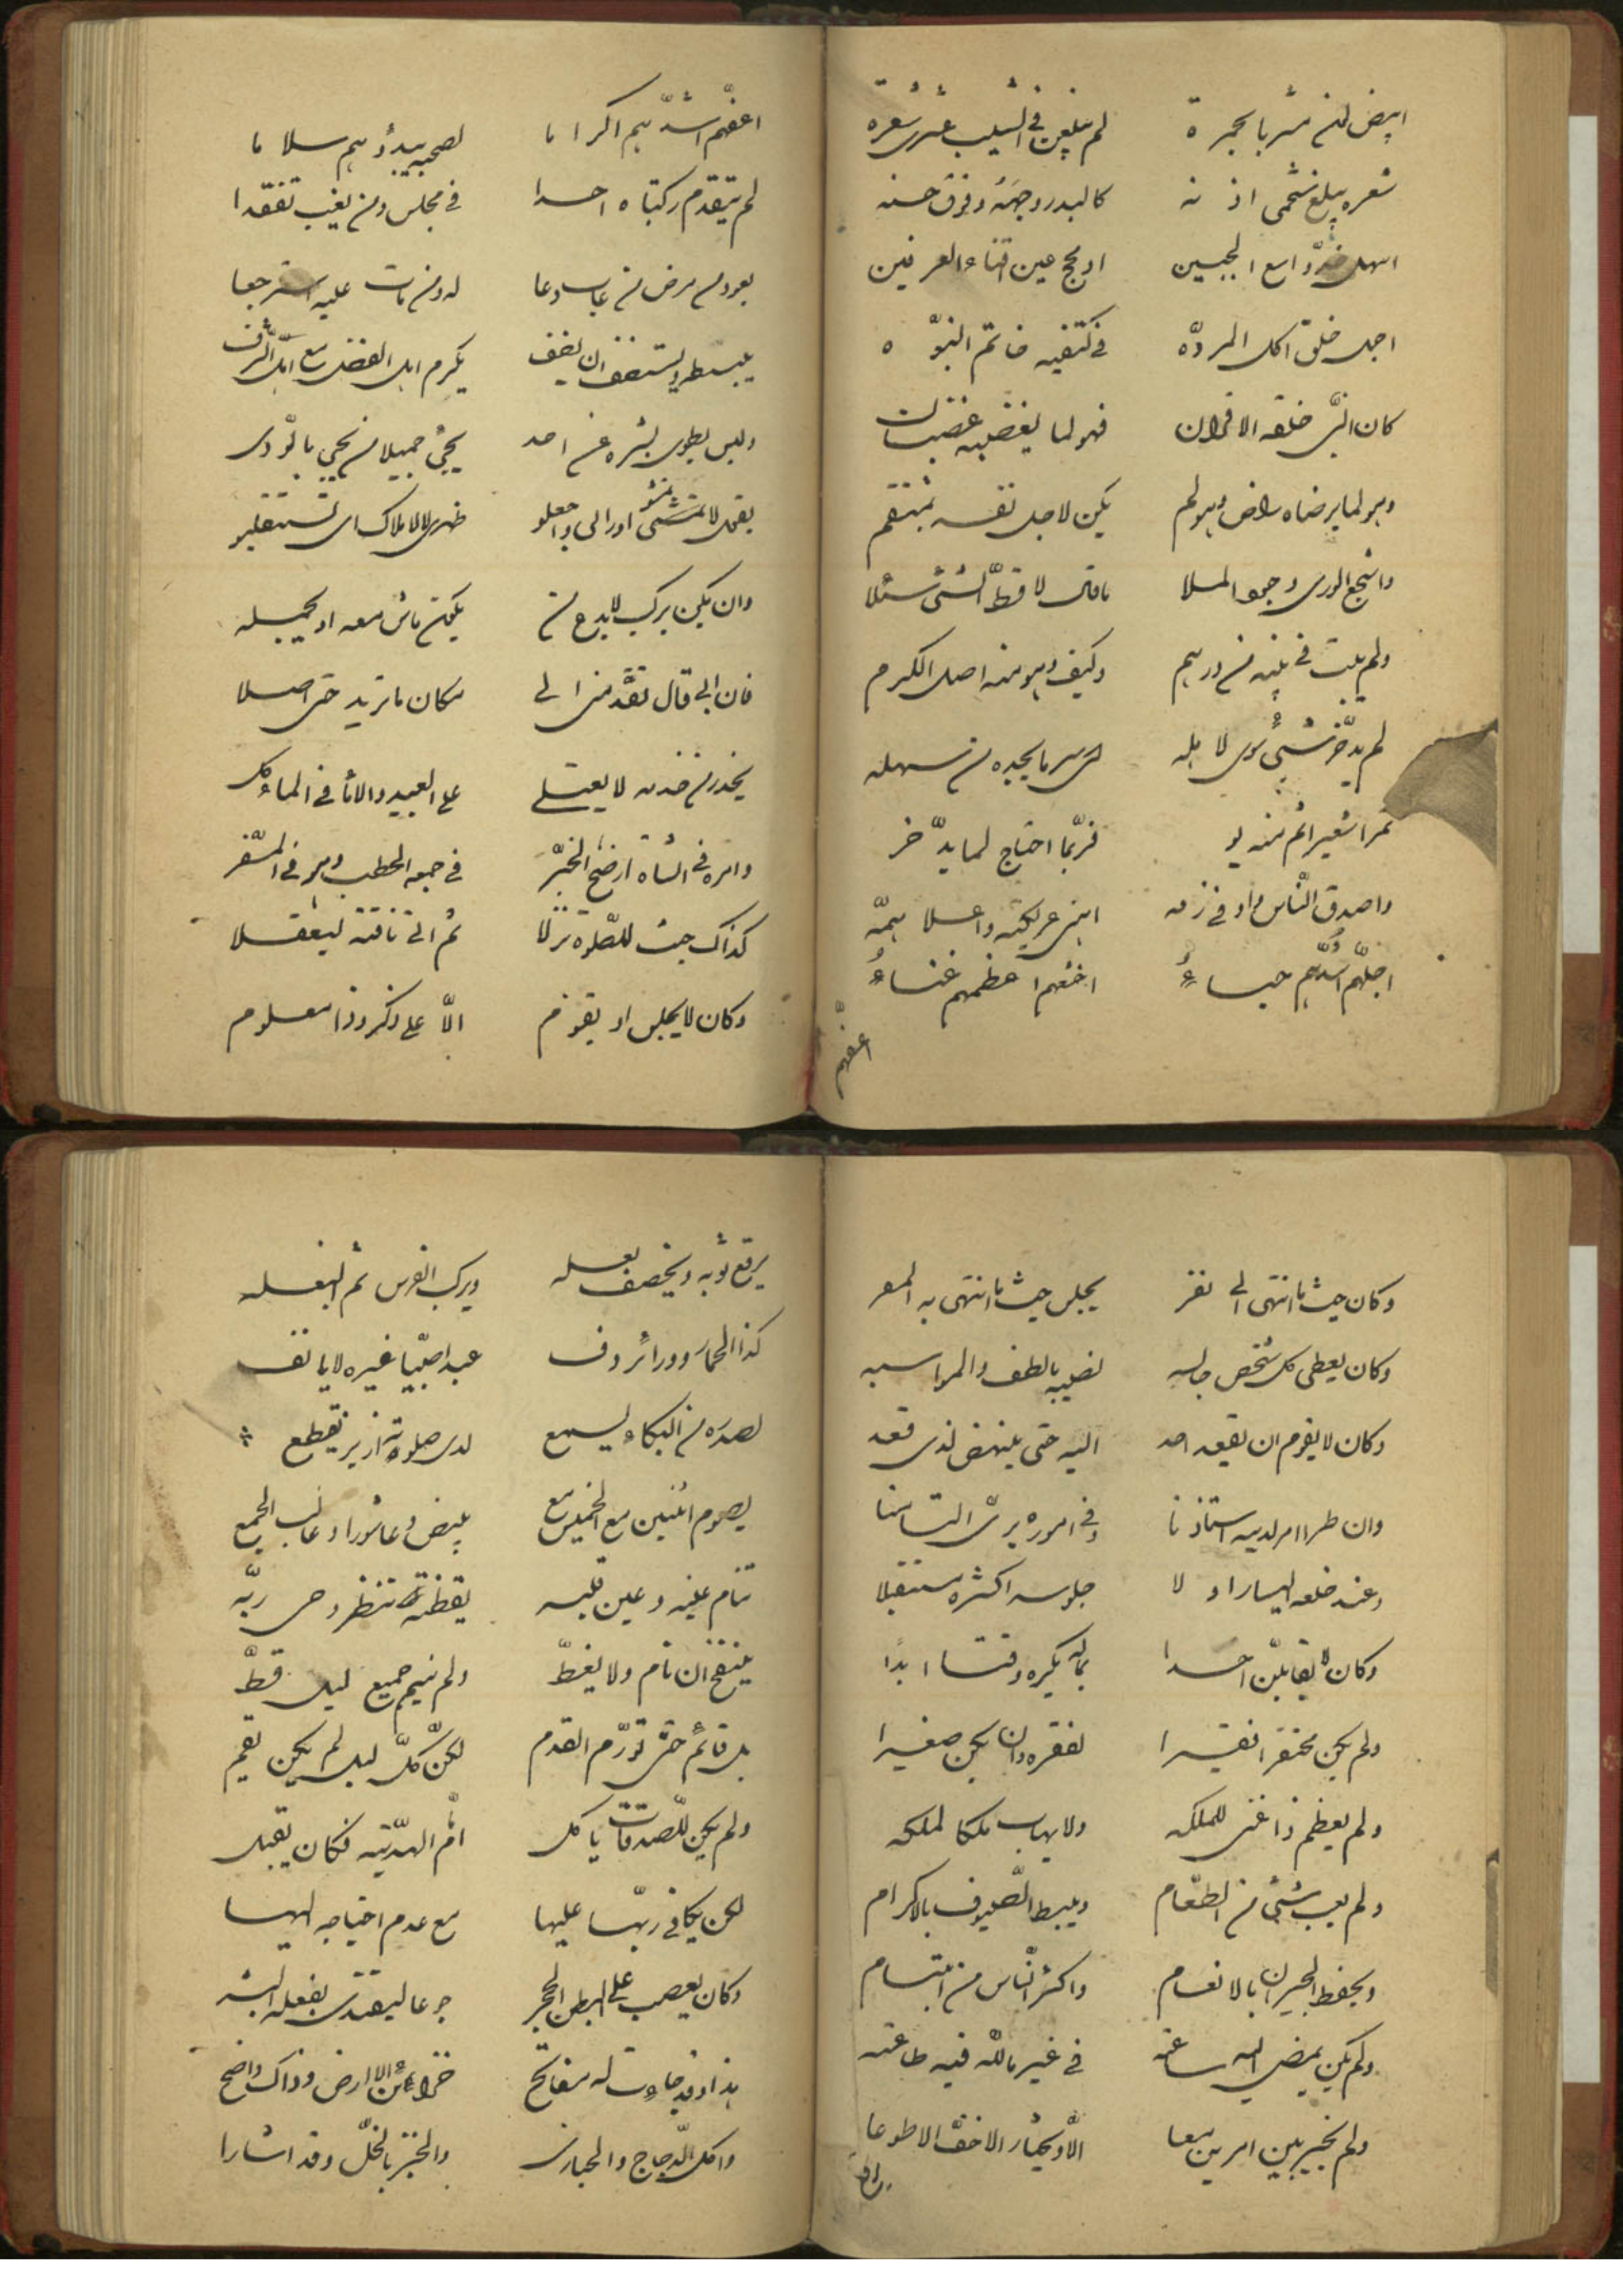 ابيض لون مشربا بحمرة لم يبلغن في الشيب عشر شعره
شعره يبلغ شحمى اذنه كالبدر وجهه وفرق حسنه
اسهل خدّ واسع الجبين ادعج عين اقناء العرنين
اجل خلق اكل المردّه في كتفيه خاتم النبوّه
كان النبي خلقه القران فهو لما يغضبه غضبان
وهو لما يرضاه راض وهو لم يكن لاجل نفسه بمنتقم
واشجع الورى وجمع الملا ما قال لا قطّ لشئ سئلا
ولم يبت في بيته من درهم وكيف وهو منه اصل الكرم
لم يدّخر شيئ سوى لاهله ايسر ما يجده من سهله
تمرا شعيرا ثم منه يو فربّما احتاج لما يدّخر
واصدق النّاس واوفى ذمه الين عريكة واعلا همّه
اجلّهم اشدّهم حياءً اخشعهم اعظمهم غناءً
اعفّهم
اعفّهم اشدّهم اكراما لصحبه يبدؤهم سلاما
لم يتقدم ركبتاه احدا في مجلس ومن يغيب تفقدا
يعود من مرض من غاب دعا له ومن مات عليه استرجعا
ينبسطر يستضف ان يضف يكرم اهل الفضل مع اهل الشّرف
وليس يطوى بشره عن احد يجيئ جميلا من يجي بالوّدى
يقول لا تمشوا ورائى واجعلو ظهرى للاملاك اى تستقبلو
وان يكن يركب لا يدع من يكون ماش معه او يحمله
فان ابى قال تقدّمن الى مكان ما تريد حتى اصلا
يخدم من خدمه لا يعتلى على العبيد والاما في المأكل
وامره في الشاة اوضح الخبر في جمعه الحطب وهو في السّفر
كذاك حيث للصّلوة نزلا ثم اتى ناقته ليعقلا
وكان لا يجلس او يقوم الّا على ذكر وذا معلوم
وكان حيث ما انتهى الى نفر يجلس حيث ما انتهى به الممر
وكان يعطى كل شخص جالسه نصيبه باللطف والمواسه
وكان لا يقوم ان يقعد احد اليه حتى ينهض لذى قعد
وان طرا امر لديه استاذنا وفي اموره يرى التيامنا
وعند خلعه اليسار اولا جلوسه اكثره مستقبلا
وكان لا يقابلن احدا بما له يكره وقتا ابدًا
ولم يكن محتقرا فقيرا لفقره وان يكن صغيرا
ولم يعظم ذا غنى للملكه ولا يهاب ملكا لملكه
ولم يعب شيئ من الطّعام ويبسط الضّيوف بالاكرام
ويحفظ الجيران بالانعام واكثر النّاس من ابتسام
ولم يكن يمضى له ساعته في غير ما للّه فيه طاعته
ولم يخير بين امرين معا الّا ويختار الاخفّ الاطوعا
يرقع ثوبه ويخصف نعله ويركب الفرس ثم البغله
كذا الحمار وورائه ردف عبدا صبيّا غيره لا يانف
لصدره من البكاء ليسمع لدى صلوته ازيز يقطع
يصوم اثنين مع الخميس مع بيض وعاشورا وغالب الجمع
تنام عينه وعين قلبه يقظته تنتظر وحى ربّه
ينفخ ان نام ولا يغطّ ولم ينم جميع ليل قطّ
بل قائم حتى تورّم القدم لكنّ كلّ ليل لم يكن يقم
ولم يكن للصّدقات ياكل امّا الهديّة فكان يقبل
لكن يكافى ربّها عليها مع عدم احتياجه اليها
وكان يعصب على البطن الحجر جوعا ليقتدى بفعله البشر
هذا وقد جاءت له مفاتح خزائن الارض وذاك واضح
واكل الدّجاج والحبارى والخبز بالخلّ وقد اشارا